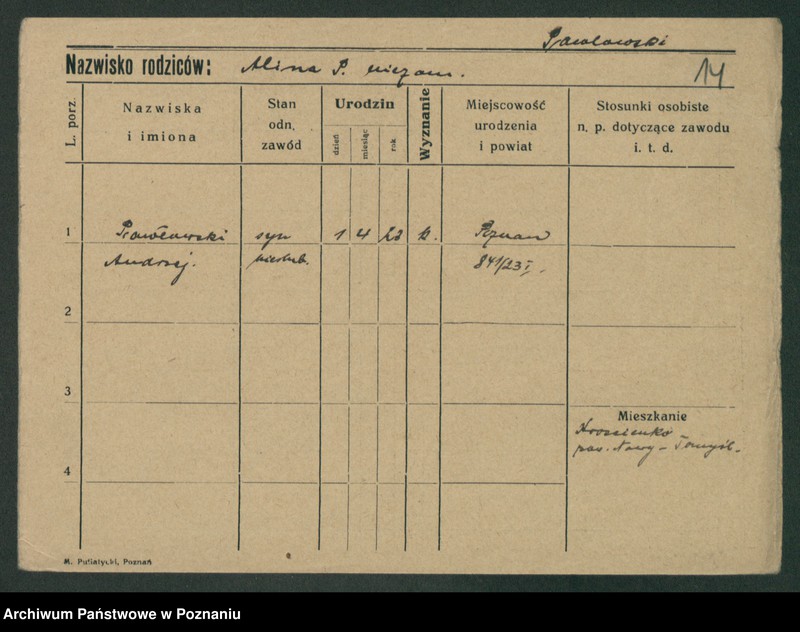 Pawlowski
Nazwisko rodziców: Alina P. niezam.
14
L. porz.
Nazwiska
i imiona
Stan
odn.
zawód
Urodzin
dzień
miesiąc
rok
Wyznanie
Miejscowość
urodzenia
i powiat
Stosunki osobiste
n. p. dotyczące zawodu
i. t. d.
1 Pawłowski syn 1 4 23 k. Poznań
Andrzej. nieślub. 841/23 I.
2
3
Mieszkanie
pow. Nowy-Tomyśl.
4
M. Putiatycki, Poznań
Archiwum Państwowe w Poznaniu